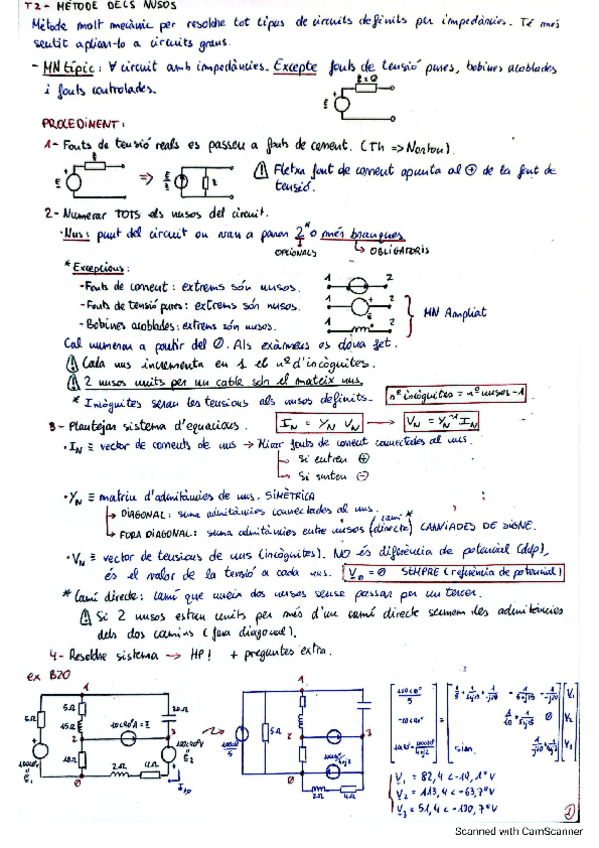 T2 - MÈTODE DELS NUSOS
Mètode molt mecànic per resoldre tot tipus de circuits definits per impedàncies. Té més
sentit aplicar-lo a circuits grans.
- MN típic: ∀ circuit amb impedàncies. Excepte fonts de tensió pures, bobines acoblades
i fonts controlades.
PROCEDIMENT:
1- Fonts de tensió reals es passen a fonts de corrent. (Th => Norton).
⚠ Fletxa font de corrent apunta al ⊕ de la font de
tensió.
2- Numerar TOTS els nusos del circuit.
· Nus: punt del circuit on van a parar 2* o més branques
OPCIONALS
OBLIGATORIS
* Excepcions:
- Fonts de corrent: extrems són nusos.
- Fonts de tensió pures: extrems són nusos.
- Bobines acoblades: extrems són nusos.
1 2
1 2
1 2
MN Ampliat
Cal numerar a partir del 0. Als exàmens es dóna fet.
⚠ Cada nus incrementa en 1 el nº d'incògnites.
⚠ 2 nusos units per un cable són el mateix nus.
* Incògnites seran les tensions als nusos definits.
nº incògnites = nº nusos - 1
3- Plantejar sistema d'equacions.
I_N = Y_N V_N → V_N = Y_N⁻¹ I_N
· I_N ≡ vector de corrents de nus → Mirar fonts de corrent connectades al nus.
Si entren ⊕
Si surten ⊖
· Y_N ≡ matriu d'admitàncies de nus. SIMÈTRICA
DIAGONAL: suma admitàncies connectades al nus.
FORA DIAGONAL: suma admitàncies entre nusos (camí directe)* CANVIADES DE SIGNE.
· V_N ≡ vector de tensions de nus (incògnites). NO és diferència de potencial (ddp),
és el valor de la tensió a cada nus.
V_0 = 0 SEMPRE (referència de potencial)
* Camí directe: camí que uneix dos nusos sense passar per un tercer.
⚠ Si 2 nusos estan units per més d'un camí directe sumem les admitàncies
dels dos camins (fora diagonal).
4- Resoldre sistema → HP! + preguntes extra.
ex B20
V_1 = 82,4 <-14,1° V
V_2 = 113,4 <-63,7° V
V_3 = 51,4 <-130,7° V
1
Scanned with CamScanner